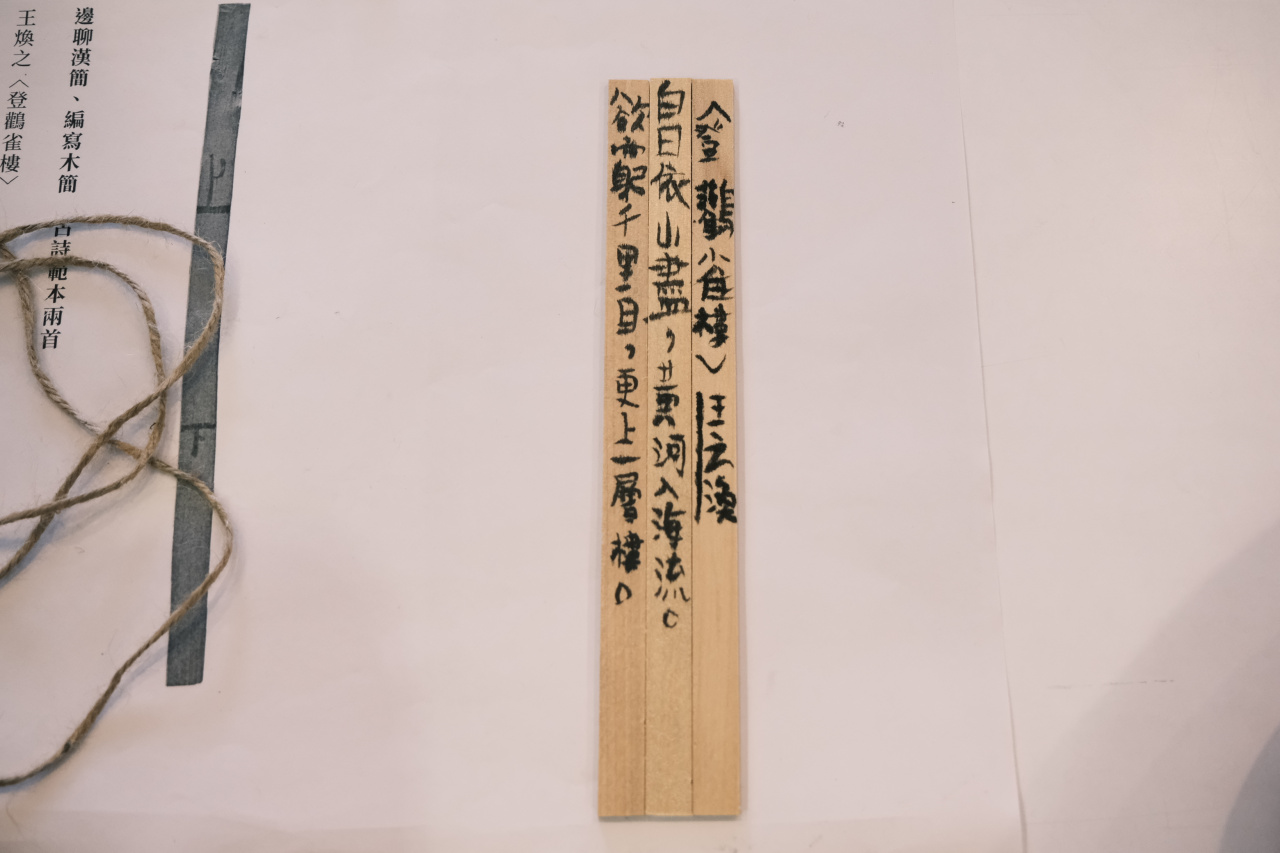 〈登鸛雀樓〉王之渙
自日依山盡，黃河入海流。
欲窮千里目，更上一層樓。
上
下
邊聊漢簡、編寫木簡 古詩範本兩首
王煥之〈登鸛雀樓〉